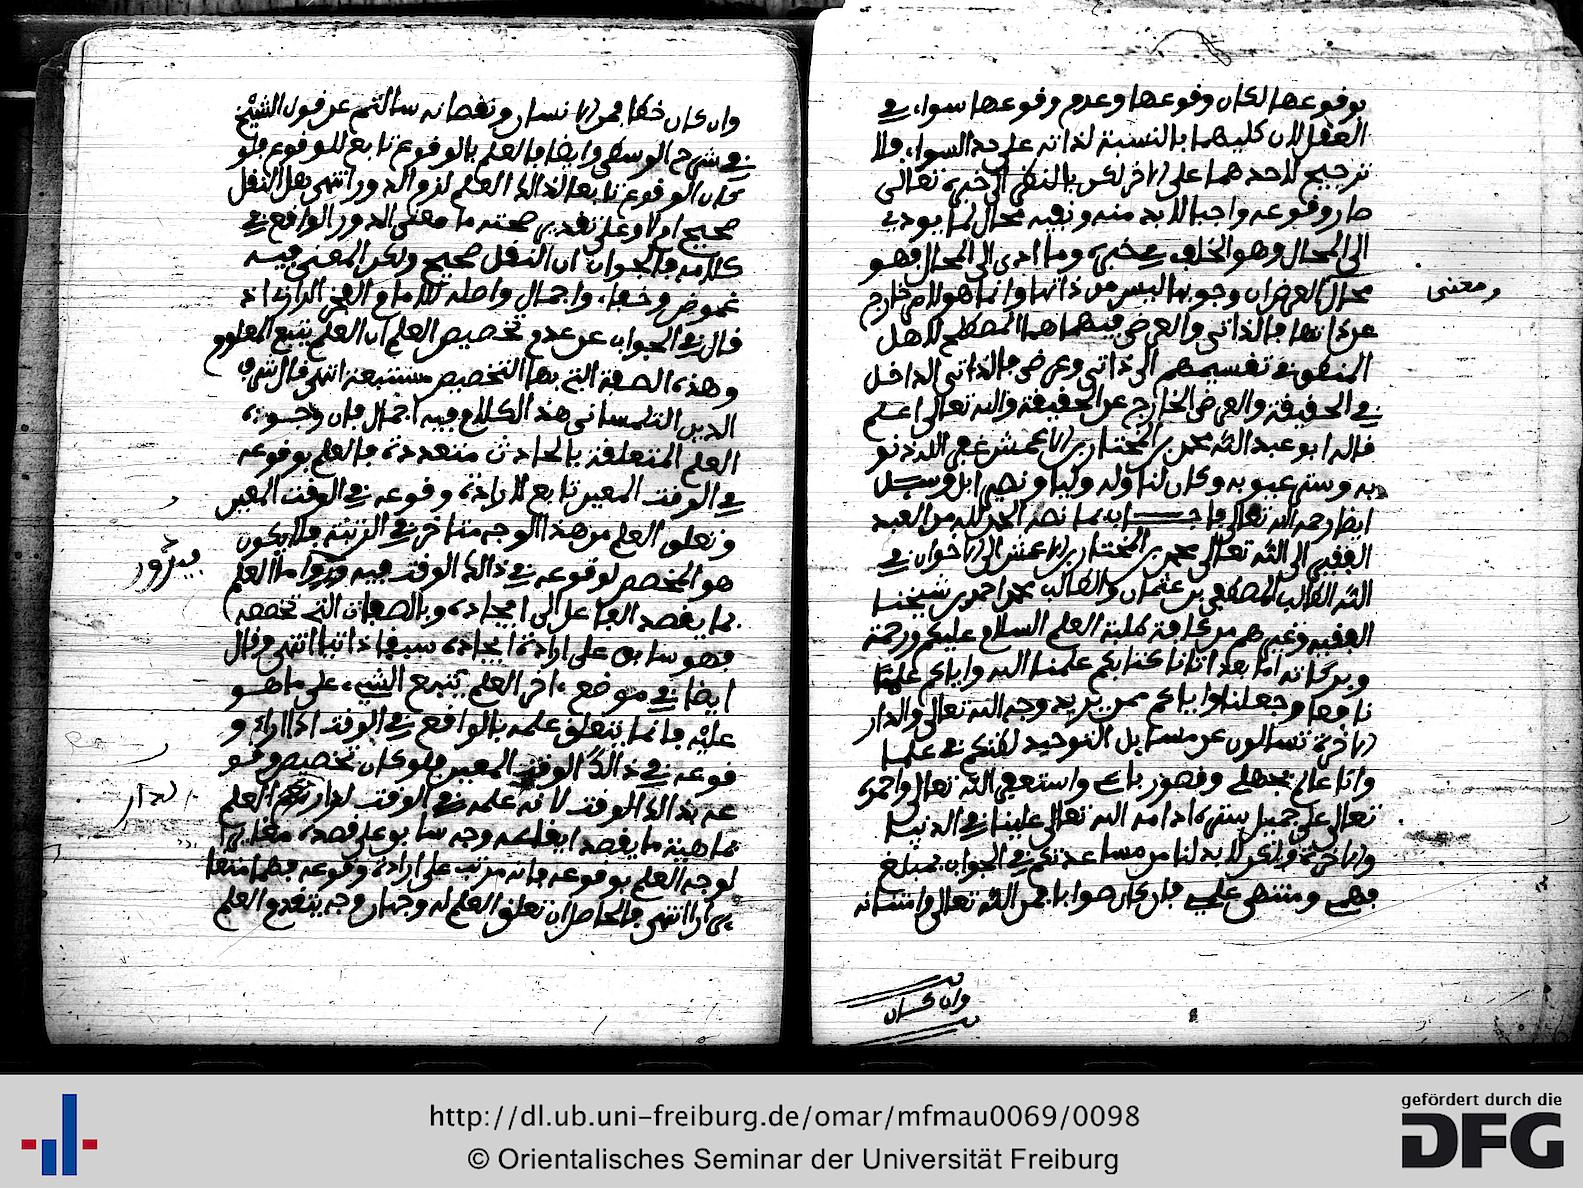 بوقوعها لكان وقوعها وعدم وقوعها سواء في
العقل لان كليهما بالنسبة لذاته على حد السواء فلا
ترجيح لاحدهما على الاخر لكن بالنظر الى خبره تعالى
صار وقوعه واجبا لا بد منه ونفيه محال لما يودي
الى المحال وهو الخلف في خبره وما ادى الى المحال فهو
محال العرض ان وجوبها ليس من ذاتها وانما هو لامر خارج
ومعنى
عن ذاتها فالذاتي والعرضي فيهما هما المصطلح لاهل
المنطق في تقسيمهم الى ذاتي وعرضي فالذاتي الداخل
في الحقيقة والعرضي الخارج عن الحقيقة والله تعالى اعلم
قاله ابو عبد الله محمد بن المختار بن الاعمش غفر الله ذنو
به وستر عيوبه وكان لنا وله وليا ونصيرا وسيل
ايضا رحمه الله تعالى فاجاب بما نصه الحمد لله من العبد
الفقير الى الله تعالى محمد بن المختار بن الاعمش الى الاخوان في
الله الطالب المصطفى بن عثمان والطالب محمد احمد بن شيخنا
الفقيه وغيرهم من كافة طلبة العلم السلام عليكم ورحمة
وبركاته اما بعد اتانا كتابكم علمنا الله واياكم علما
نافعا وجعلنا واياكم ممن يريد وجه الله تعالى والدار
الاخرة تسالون عن مسايل التوحيد لظنكم في علما
وانا عالم بجهلي وقصور باعي واستغفر الله تعالى واحمده
تعالى على جميل ستره ادامه الله تعالى علينا في الدنيا
والاخرة ولكن لا بد لنا من مساعدتكم في الجواب بمبلغ
فهمي ومنتهى علمي فان كان صوابا فمن الله تعالى وامتنانه
وان كان
وان كان خطا فمن الانسان ونقصانه سالتم عن قول الشيخ
في شرح الوسطى وايضا فالعلم بالوقوع تابع للوقوع فلو
كان الوقوع تابعا لذالك العلم لزم الدور انتهى هل النقل
صحيح ام لا وعلى تقدير صحته ما معنى الدور الواقع في
كلامه فالجواب ان النقل صحيح ولكن المعنى فيه
غموض وخفاء واجمال واصله للامام الفخر الرازي اذ
قال في الجواب عن عدم تخصيص العلم ان العلم يتبع المعلوم
وهذه الصفة التي بها التخصيص مستتبعة انتهى قال شرف
الدين التلمساني هذا الكلام فيه اجمال فان وجوه
العلم المتعلقة بالحادث متعددة فالعلم بوقوعه
في الوقت المعين تابع لارادة وقوعه في الوقت المعين
وتعلق العلم من هذا الوجه متاخر في الرتبة فلا يكون
هو المخصص لوقوعه في ذالك الوقت فيدور واما العلم
فيدور
بما يقصد الفاعل الى ايجاده وبالصفات التي تخصصه
فهو سابق على ارادة ايجاده سبقا ذاتيا انتهى وقال
ايضا في موضع اخر العلم يتبع الشيء على ما هو
عليه فانما يتعلق علمه بالواقع في الوقت اذا اراد و
قوعه في ذالك الوقت المعين فلو كان تخصيص وقو
عه بذالك الوقت لانه علمه في الوقت لدار نعم العلم
لدار
بماهية ما يقصد ايقاعه وجه سابق على قصده مغاير
لوجه العلم بوقوعه فانه مرتب على ارادة وقوعه فهما متغا
يران انتهى فالحاصل ان تعلق العلم له وجهان وجه يتقدم العلم
http://dl.ub.uni-freiburg.de/omar/mfmau0069/0098
© Orientalisches Seminar der Universität Freiburg
gefördert durch die
DFG